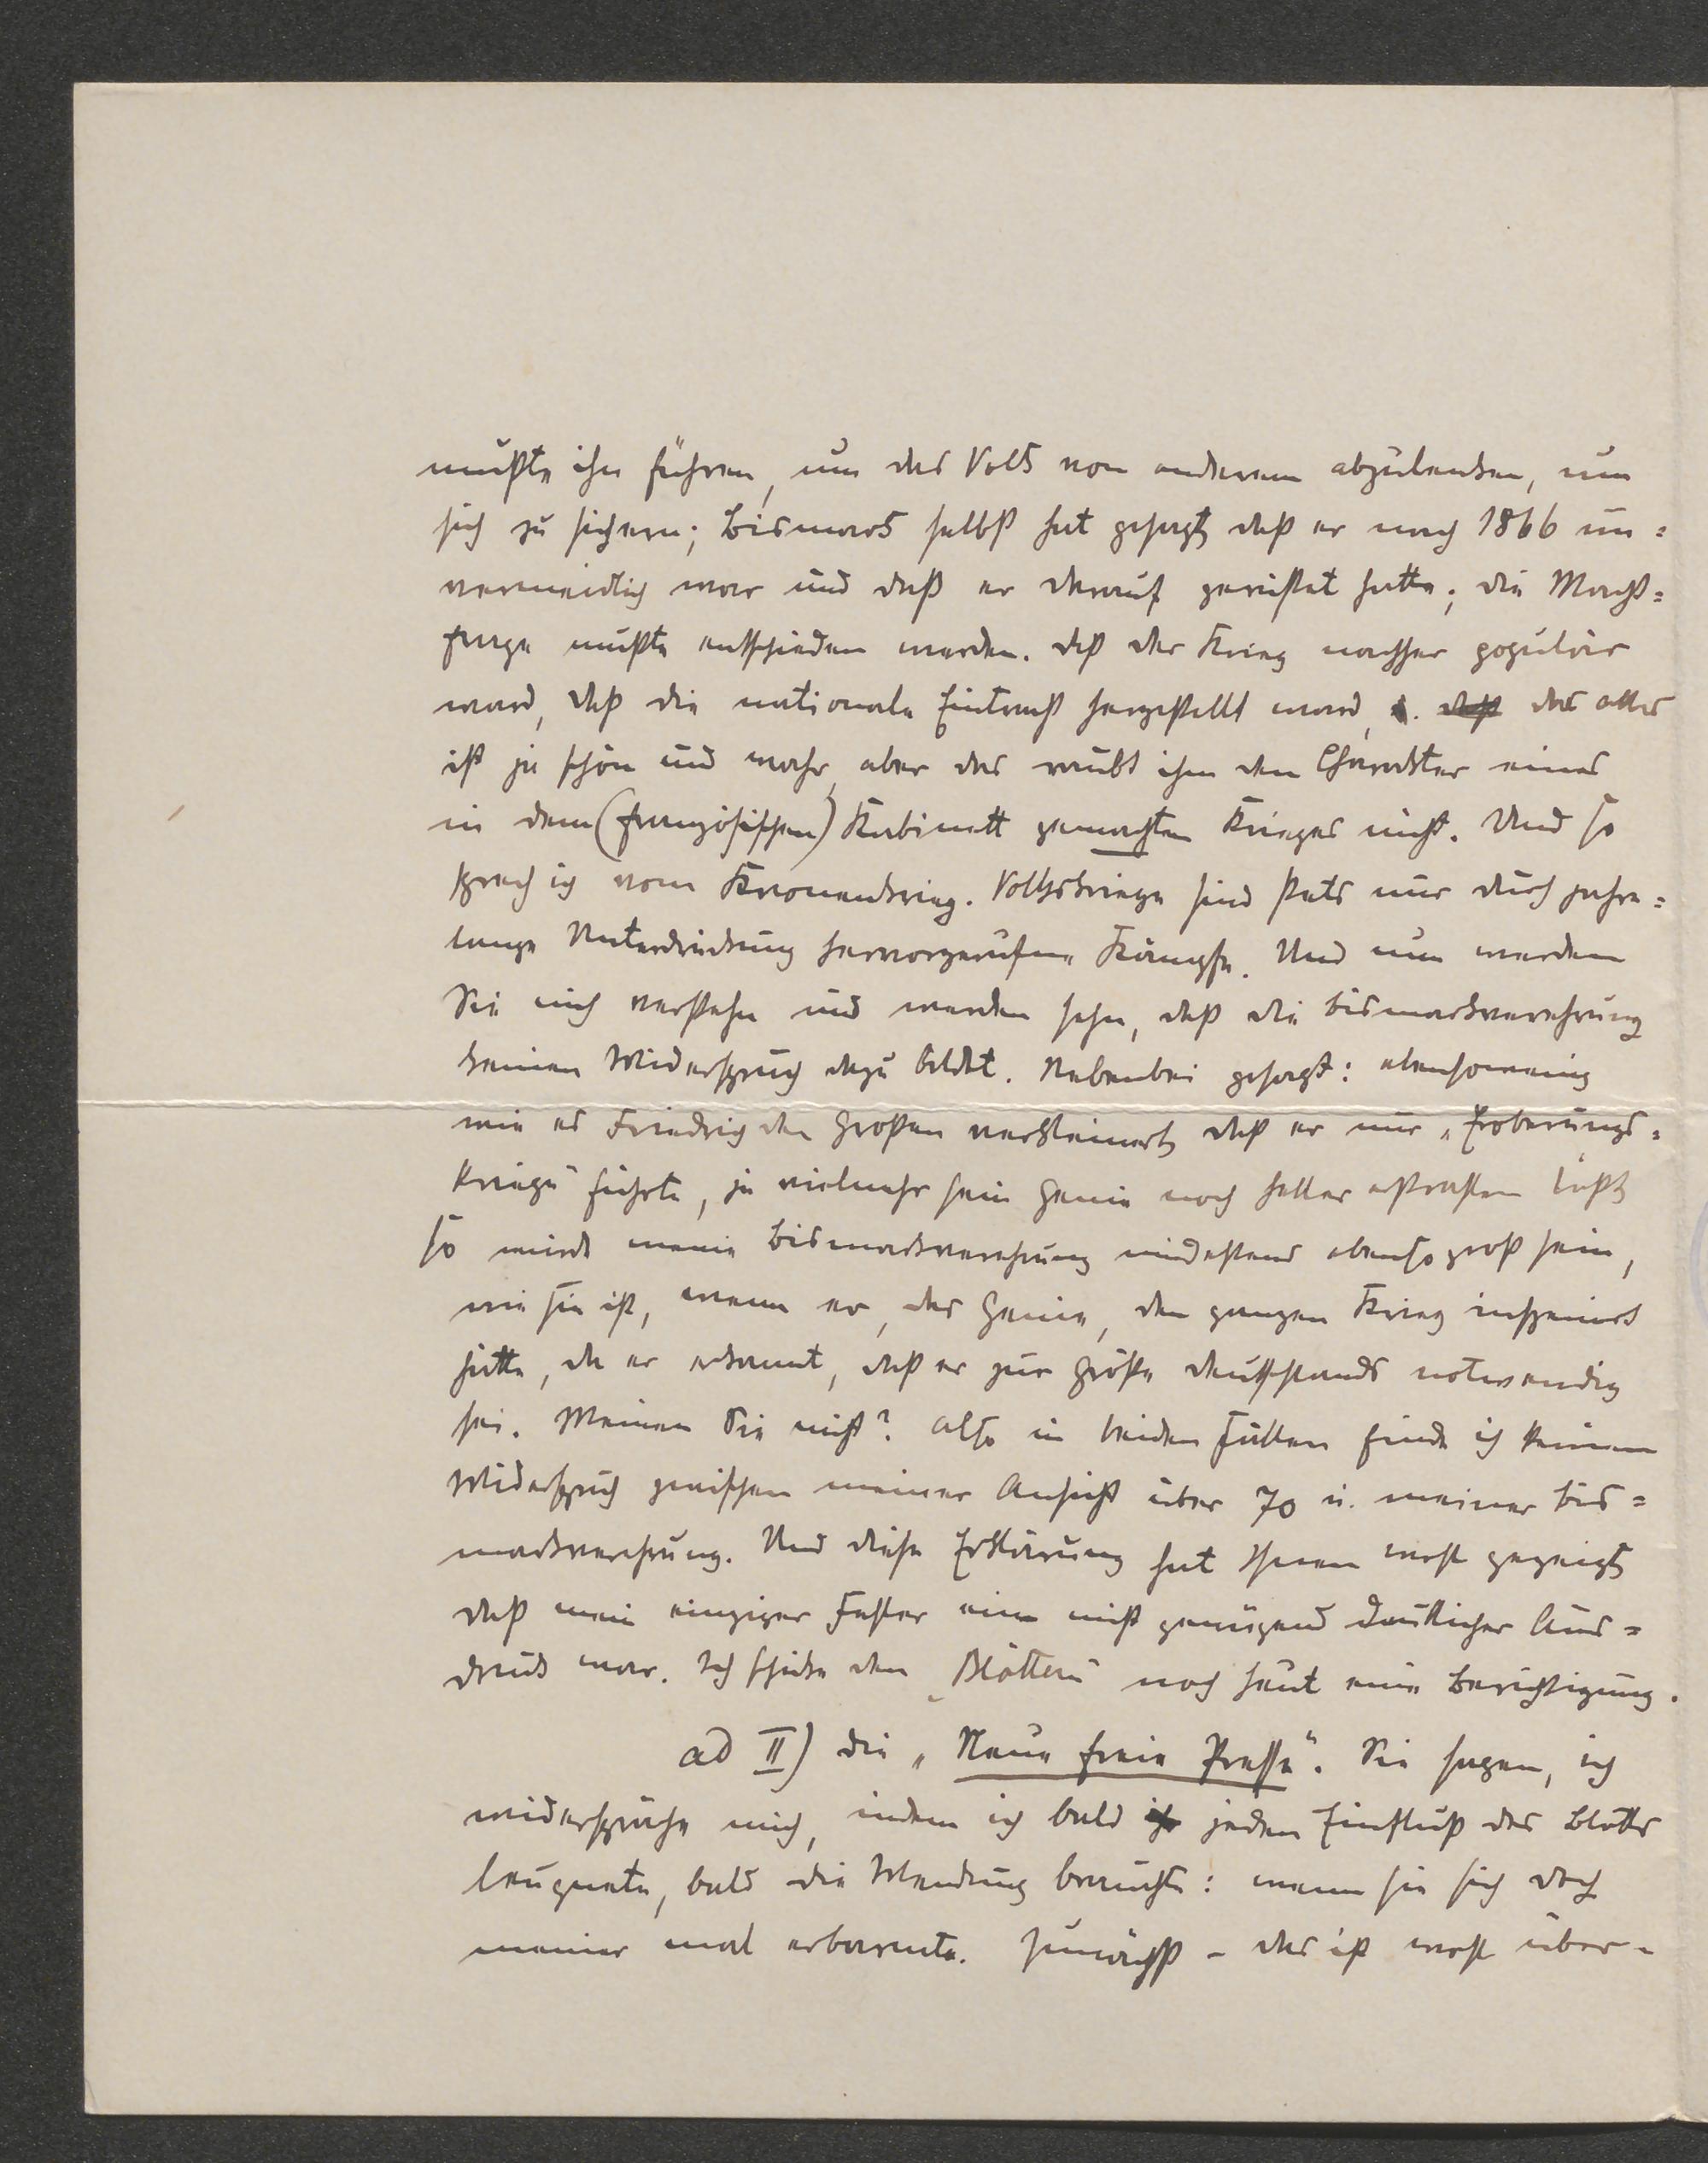 mußte ihn führen, um das Volk von anderem abzulenken, um
sich zu sichern; Bismarck selbst hat gesagt, daß er nach 1866 un=
vermeidlich war und daß er darauf gerüstet hatte; die Macht=
frage mußte entschieden werden. Daß der Krieg nachher populär
ward, daß die nationale Eintracht hergestellt ward, daß das alles
ist ja schön und wahr, aber das raubt ihm den Charakter eines
in dem (französischen) Kabinett gemachten Krieges nicht. Und so
sprach ich vom Kronenkrieg. Volkskriege sind stets nur durch jahre=
lange Unterdrückung hervorgerufene Kämpfe. Und nun werden
Sie mich verstehn und werden sehn, daß die Bismarckverehrung
keinen Widerspruch dazu bildet. Nebenbei gesagt: ebensowenig
wie es Friedrich den Großen verkleinert, daß er nur „Eroberungs=
kriege" führte, ja vielmehr sein Genie noch heller erstrahlen läßt,
so würde meine Bismarckverehrung mindestens ebenso groß sein,
wie sie ist, wenn er, das Genie, den ganzen Krieg inszeniert
hätte, da er erkannt, daß er zur Größe Deutschlands notwendig
sei. Meinen Sie nicht? Also in beiden Fällen finde ich keinen
Widerspruch zwischen meiner Ansicht über 70 u. meiner Bis=
marckverehrung. Und diese Erklärung hat Ihnen wohl gezeigt,
daß mein einziger Fehler ein nicht genügend deutlicher Aus=
druck war. Ich schicke den „Blättern" noch heut eine Berichtigung.
ad II) die „Neue freie Presse". Sie sagen, ich
widerspräche mich, indem ich bald jeden Einfluß des Blatts
leugnete, bald die Wendung brauchte: wenn sie sich doch
meiner mal erbarmte. Zunächst - das ist wohl über=